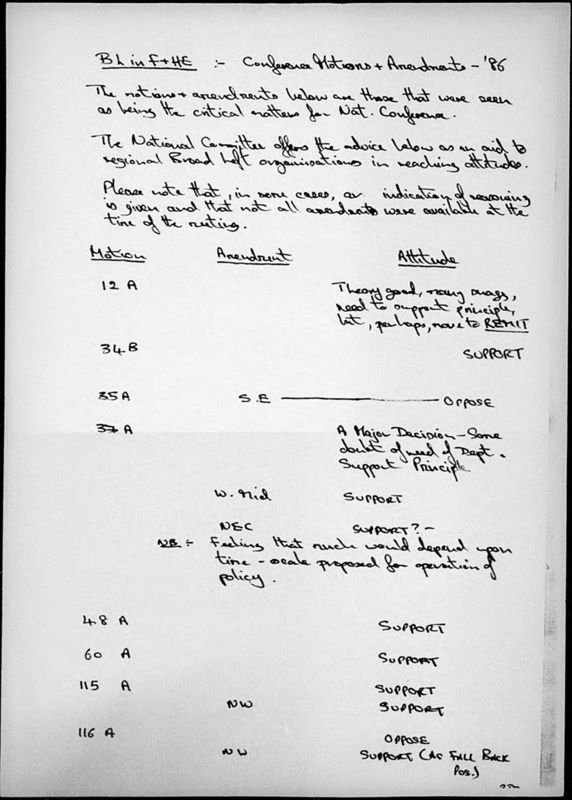 BL in F+HE :- Conference Motions + Amendments - '86
The motions + amendments below are those that were seen
as being the critical matters for Nat. Conference.
The National Committee offers the advice below as an aid to
regional Broad Left organisations in reaching attitudes.
Please note that, in some cases, an indication of reasoning
is given and that not all amendments were available at the
time of the meeting.
Motion Amendment Attitude
12 A Theory good, many snags,
need to support principle,
but, perhaps, move to REMIT
34 B SUPPORT
35 A S.E OPPOSE
37 A A Major Decision - Some
doubt of need of Dept.
Support Principle
W. Mid SUPPORT
NEC SUPPORT? -
NB :- Feeling that much would depend upon
time-scale proposed for operation of
policy.
48 A SUPPORT
60 A SUPPORT
115 A SUPPORT
NW SUPPORT
116 A OPPOSE
NW SUPPORT (AS FALL BACK
POS.)